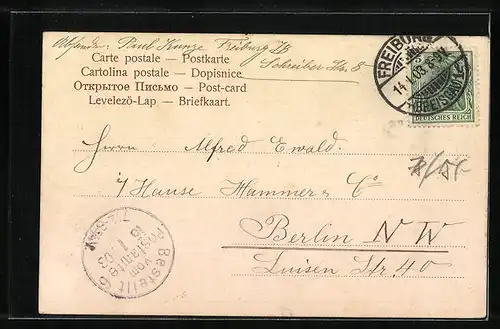 Absender: Paul Kunze Freiburg i/B
Schreiber Str. 8
Carte postale – Postkarte
Cartolina postale – Dopisnice
Открытое Письмо – Post-card
Levelező-Lap – Briefkaart.
FREIBURG
14.1.03. 8-9N.
(BREISGAU)
DEUTSCHES REICH
Herrn Alfred Ewald.
i/ Hause Hammer & Co
Berlin NW
Luisen Str. 40
Bestellt
vom
Postamte 6
15 1 03